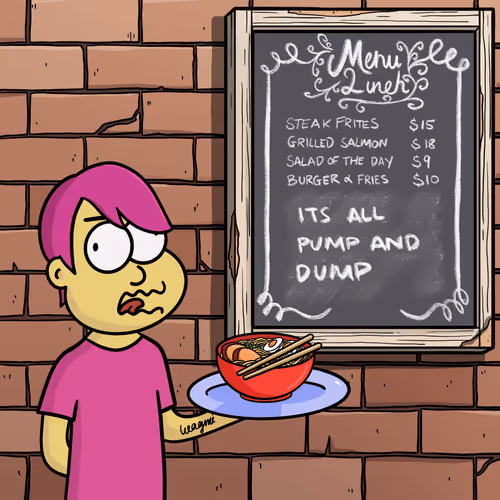 Menu
Lunch
STEAK FRITES $15
GRILLED SALMON $18
SALAD OF THE DAY $9
BURGER & FRIES $10
ITS ALL
PUMP AND
DUMP
wagmi